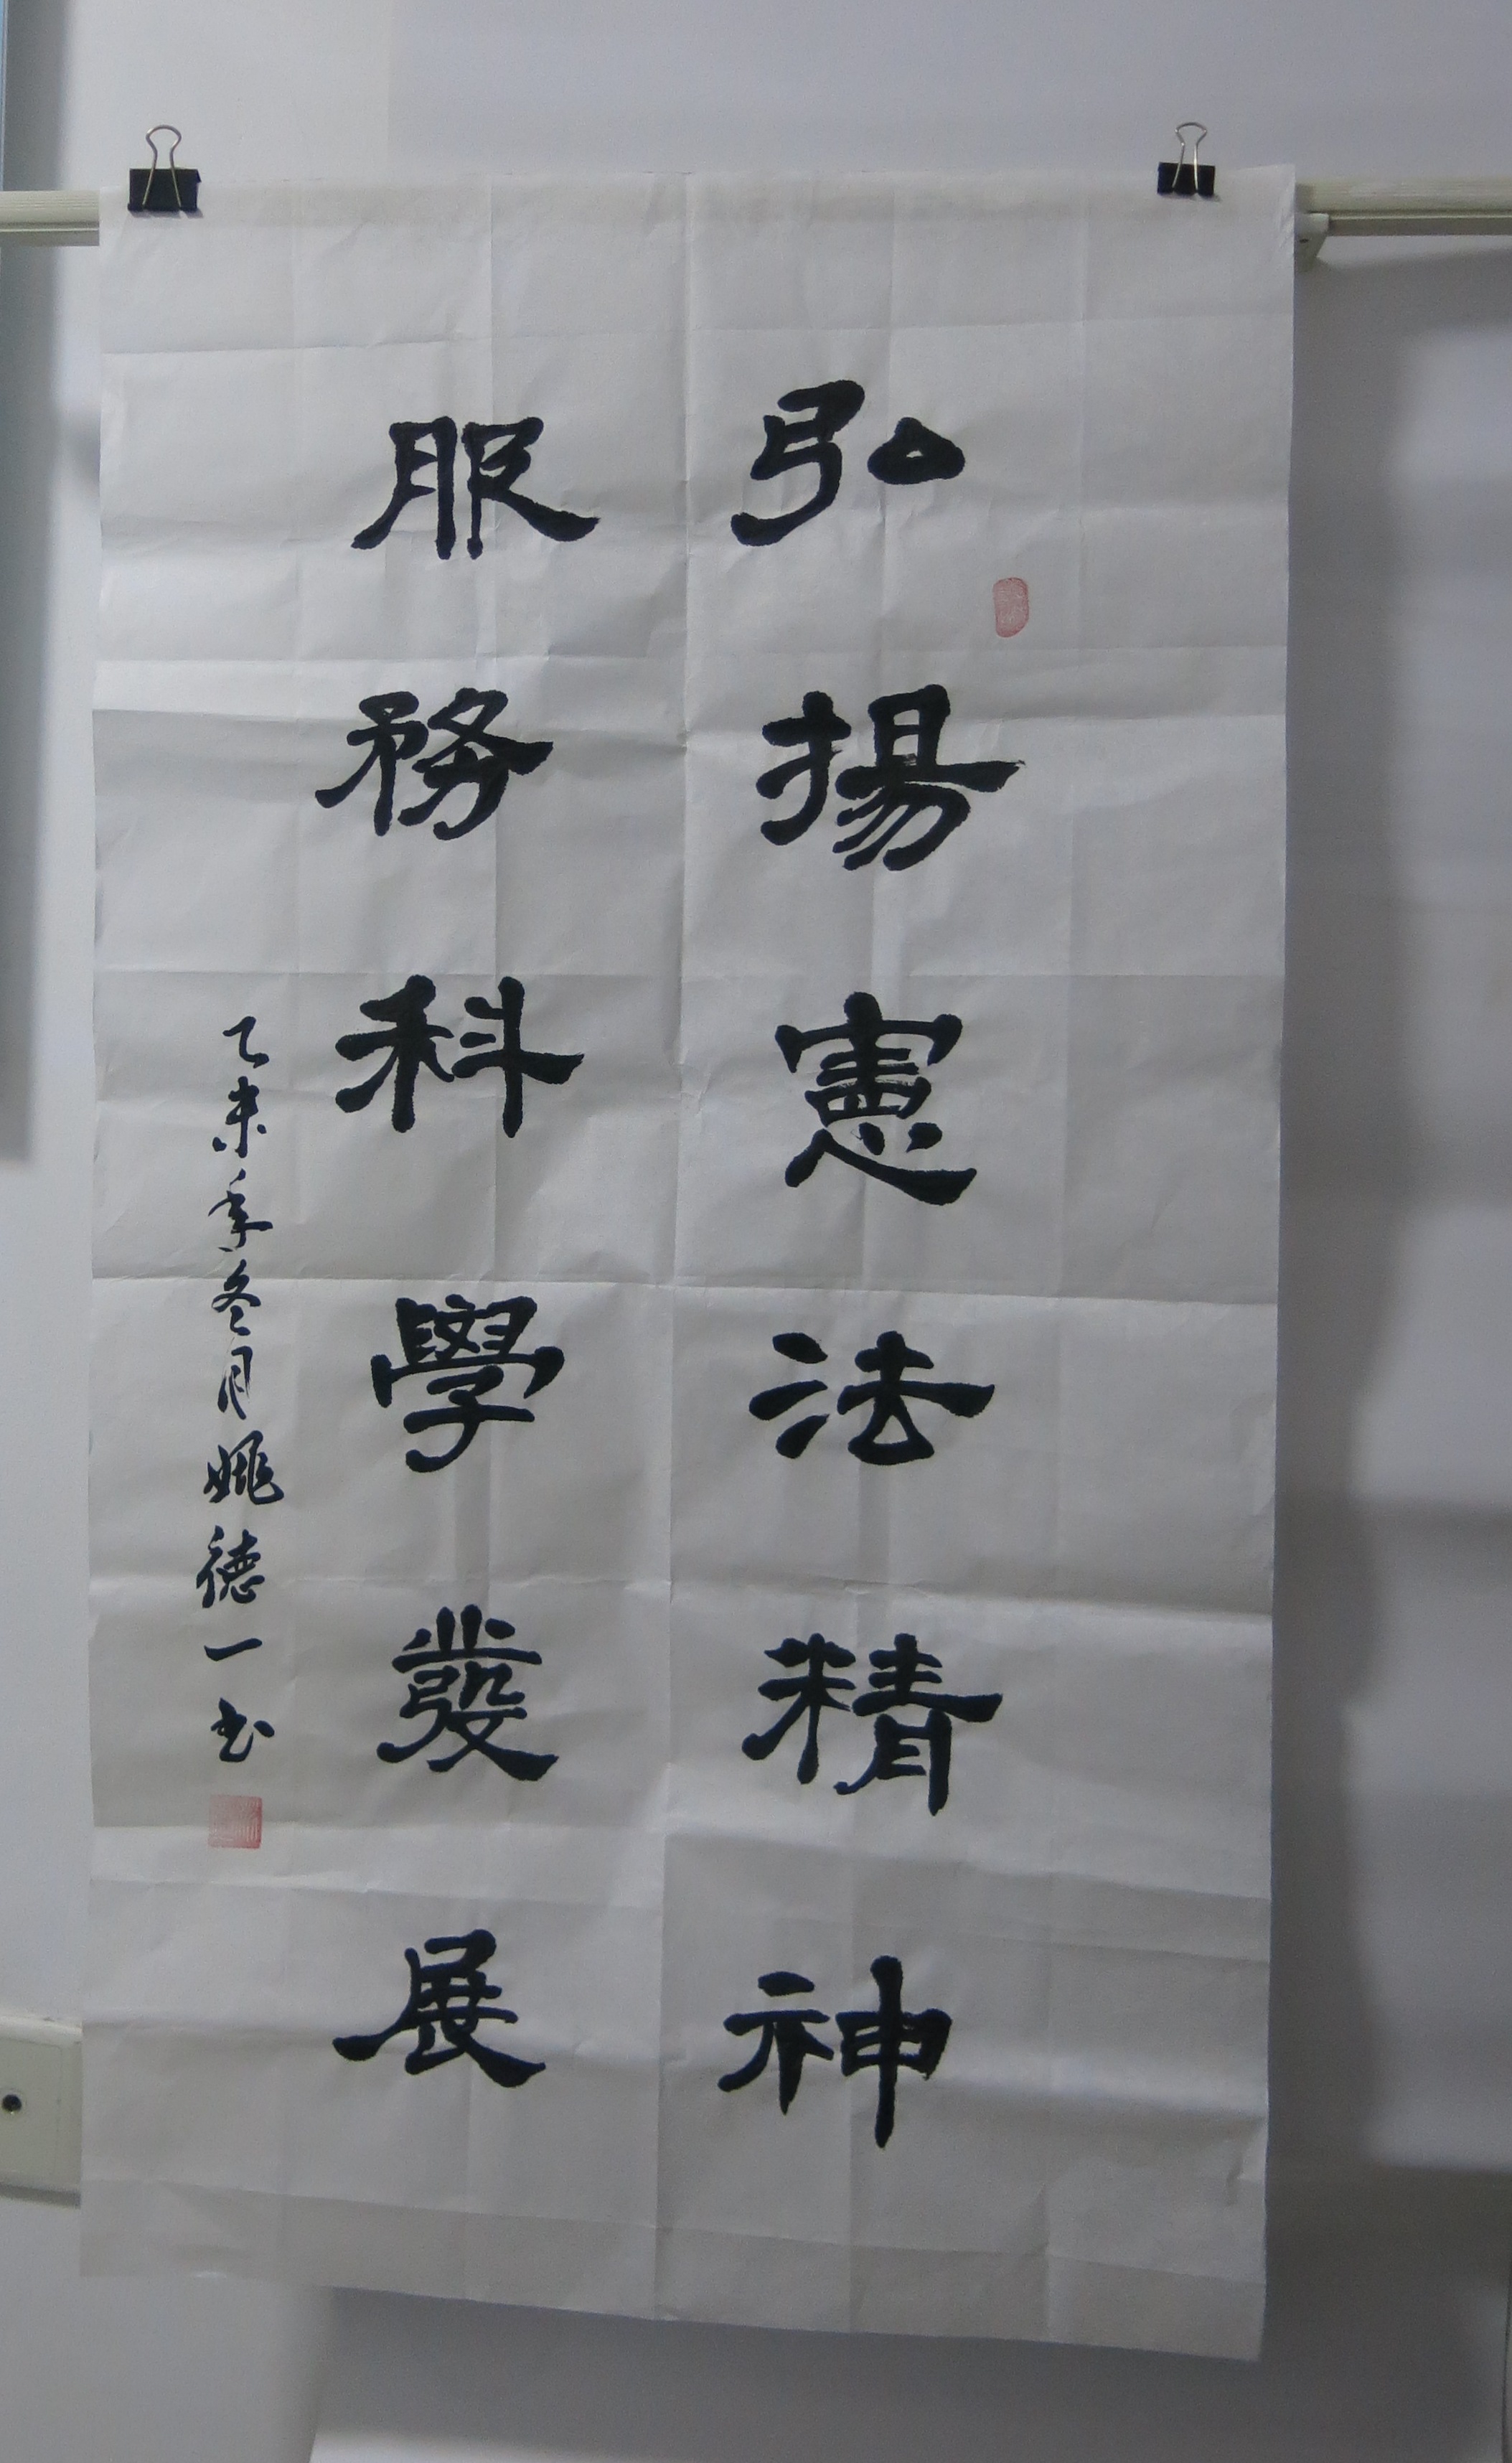 弘揚憲法精神
服務科學發展
乙未年冬月姚德一书